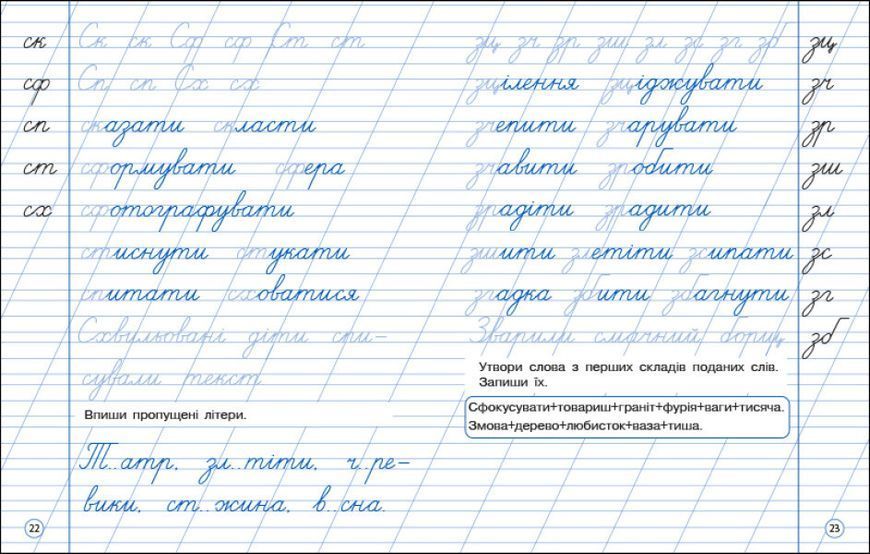 ск Ск ск Сф сф Ст ст
сф Сп сп Сх сх
сп сказати скласти
ст сформувати сфера
сх сфотографувати
стиснути стукати
спитати сховатися
Схвильовані діти спи-
сували текст
Впиши пропущені літери.
Т..атр, зл..тіти, ч..ре-
вики, ст..жина, в..сна.
22
зц зч зр зш зл зс зг зб зц
зцілення зціджувати зч
зчепити зчарувати зр
зчавити зробити зш
зрадіти зрадити зл
зшити злетіти зсипати зс
згадка збити збагнути зг
Зварили смачний борщ зб
Утвори слова з перших складів поданих слів.
Запиши їх.
Сфокусувати+товариш+граніт+фурія+ваги+тисяча.
Змова+дерево+любисток+ваза+тиша.
23